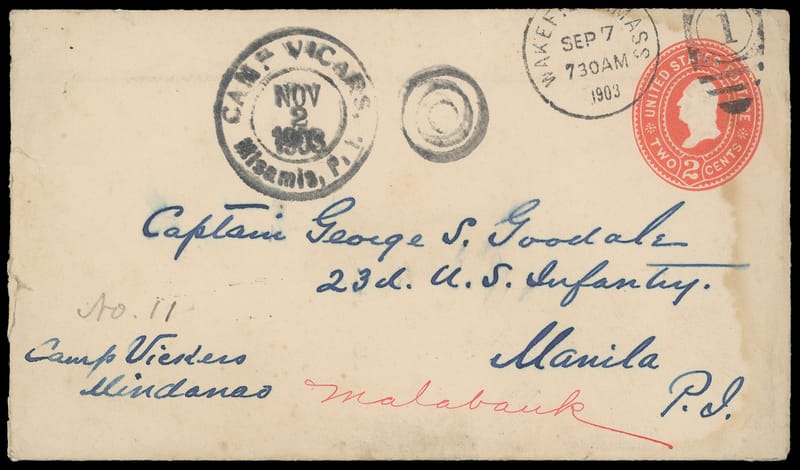 CAMP VICARS,
NOV
2
1903
Misamis, P. I.
WAKEFIELD MASS
SEP 7
730AM
1903
1
UNITED STATES POSTAGE
TWO 2 CENTS
Captain George S. Goodale
23d. U. S. Infantry.
No. 11
Camp Vickers
Mindanao
Manila
P. I.
Malabauk